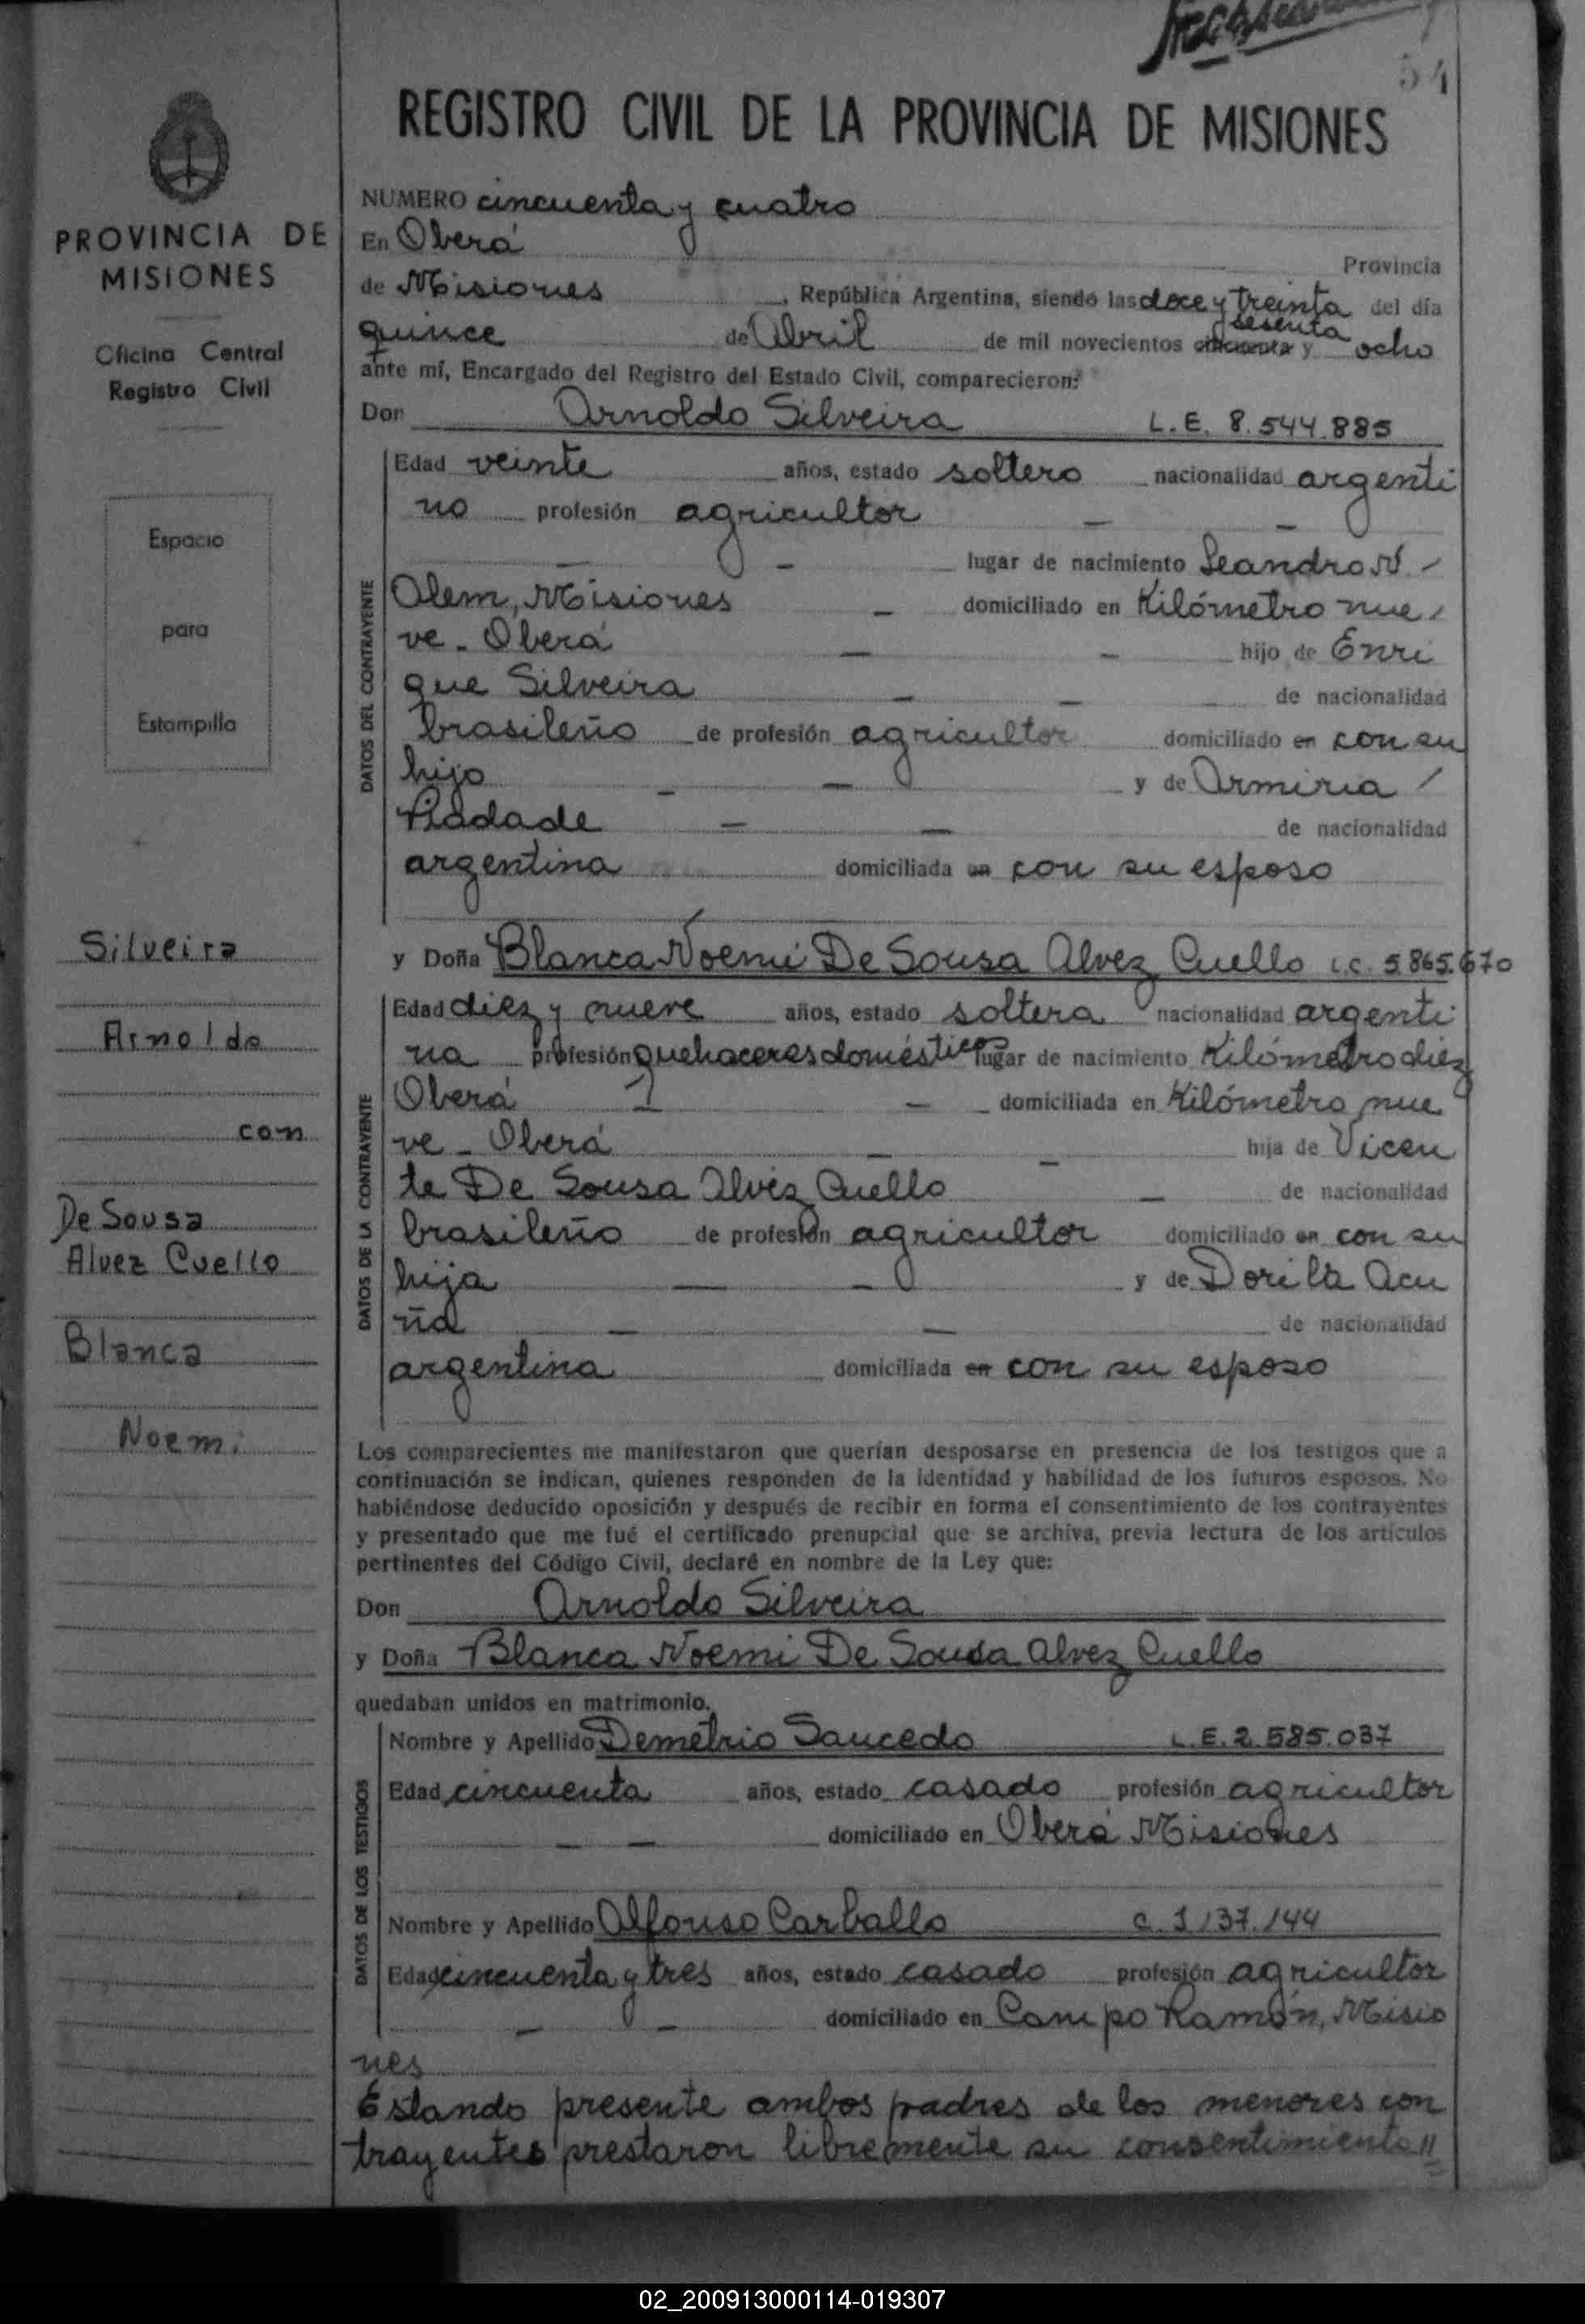 54
REGISTRO CIVIL DE LA PROVINCIA DE MISIONES
PROVINCIA DE
MISIONES
Oficina Central
Registro Civil
Espacio
para
Estampilla
Silveira
Arnoldo
con
De Sousa
Alvez Cuello
Blanca
Noemi
NUMERO cincuenta y cuatro
En Oberá Provincia
de Misiones, República Argentina, siendo las doce y treinta del día
quince de Abril de mil novecientos cincuenta y sesenta ocho
ante mí, Encargado del Registro del Estado Civil, comparecieron:
Don Arnoldo Silveira L.E. 8.544.885
DATOS DEL CONTRAYENTE
Edad veinte años, estado soltero nacionalidad argenti
no profesión agricultor — —
— - lugar de nacimiento Leandro N. -
Alem, Misiones — domiciliado en Kilómetro nue-
ve - Oberá — - hijo de Enri
que Silveira — — de nacionalidad
brasileño de profesión agricultor domiciliado en con su
hijo — — y de Armiria /
de nacionalidad
argentina domiciliada en con su esposo
y Doña Blanca Noemi De Sousa Alvez Cuello L.C. 5.865.670
DATOS DE LA CONTRAYENTE
Edad diez y nueve años, estado soltera nacionalidad argenti
na profesión quehaceres domésticos lugar de nacimiento Kilómetro diez
Oberá — domiciliada en Kilómetro nue
ve - Oberá — — hija de Vicen
te De Sousa Alvez Cuello — de nacionalidad
brasileño de profesión agricultor domiciliado en con su
hija — — y de Dorila Acu
ña — — de nacionalidad
argentina domiciliada en con su esposo
Los comparecientes me manifestaron que querían desposarse en presencia de los testigos que a
continuación se indican, quienes responden de la identidad y habilidad de los futuros esposos. No
habiéndose deducido oposición y después de recibir en forma el consentimiento de los contrayentes
y presentado que me fué el certificado prenupcial que se archiva, previa lectura de los artículos
pertinentes del Código Civil, declaré en nombre de la Ley que:
Don Arnoldo Silveira
y Doña Blanca Noemi De Sousa Alvez Cuello
quedaban unidos en matrimonio.
DATOS DE LOS TESTIGOS
Nombre y Apellido Demetrio Saucedo L.E. 2.585.037
Edad cincuenta años, estado casado profesión agricultor
— — domiciliado en Oberá Misiones
Nombre y Apellido Alfonso Carballo C. 1.137.144
Edad cincuenta y tres años, estado casado profesión agricultor
— — domiciliado en Campo Ramón, Misio
nes
Estando presente ambos padres de los menores con
trayentes prestaron libremente su consentimiento //
02_200913000114-019307